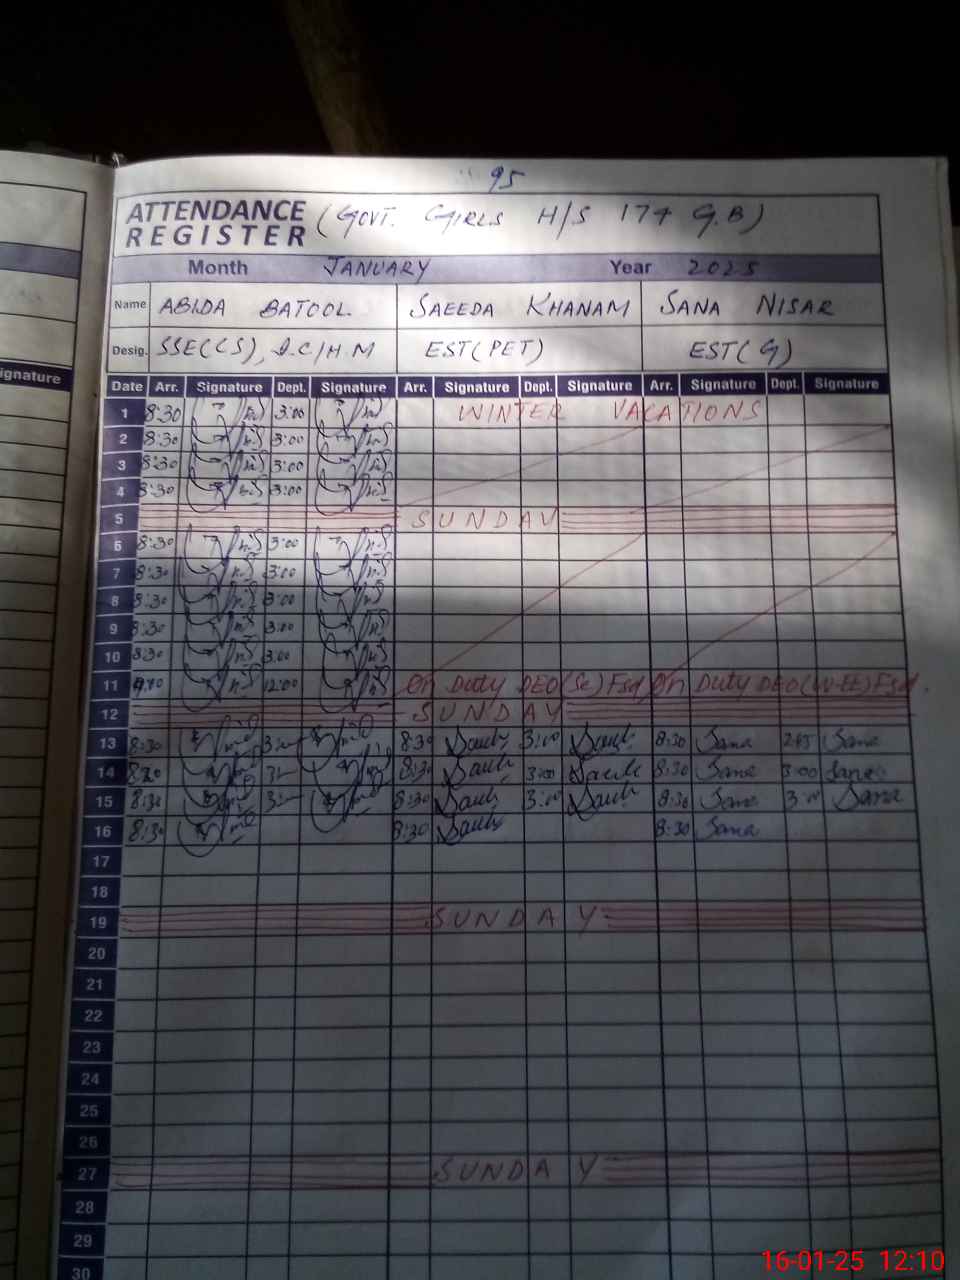 95
ATTENDANCE REGISTER (GOVT. GIRLS H/S 174 G.B)
Month JANUARY Year 2025
Name ABIDA BATOOL SAEEDA KHANAM SANA NISAR
Desig. SSE(CS), I.C/H.M EST(PET) EST(G)
ignature
Date Arr. Signature Dept. Signature Arr. Signature Dept. Signature Arr. Signature Dept. Signature
1 8:30 3:00 WINTER VACATIONS
2 8:30 3:00
3 8:30 3:00
4 8:30 3:00
5 SUNDAY
6 8:30 3:00
7 8:30 3:00
8 8:30 3:00
9 8:30 3:00
10 8:30 3:00
11 12:00 On Duty DEO(Se) Fsd On Duty DEO(W-EE) Fsd.
12 SUNDAY
13 8:30 8:30 3:00 8:30 2:45 Sana Sana
14 8:30 3:00 Sana 3:00 Sana
15 8:30 8:30 3:00 8:30 Sana 3:00 Sana
16 8:30 8:30 8:30 Sana
17
18
19 SUNDAY
20
21
22
23
24
25
26
27 SUNDAY
28
29
30
16-01-25 12:10